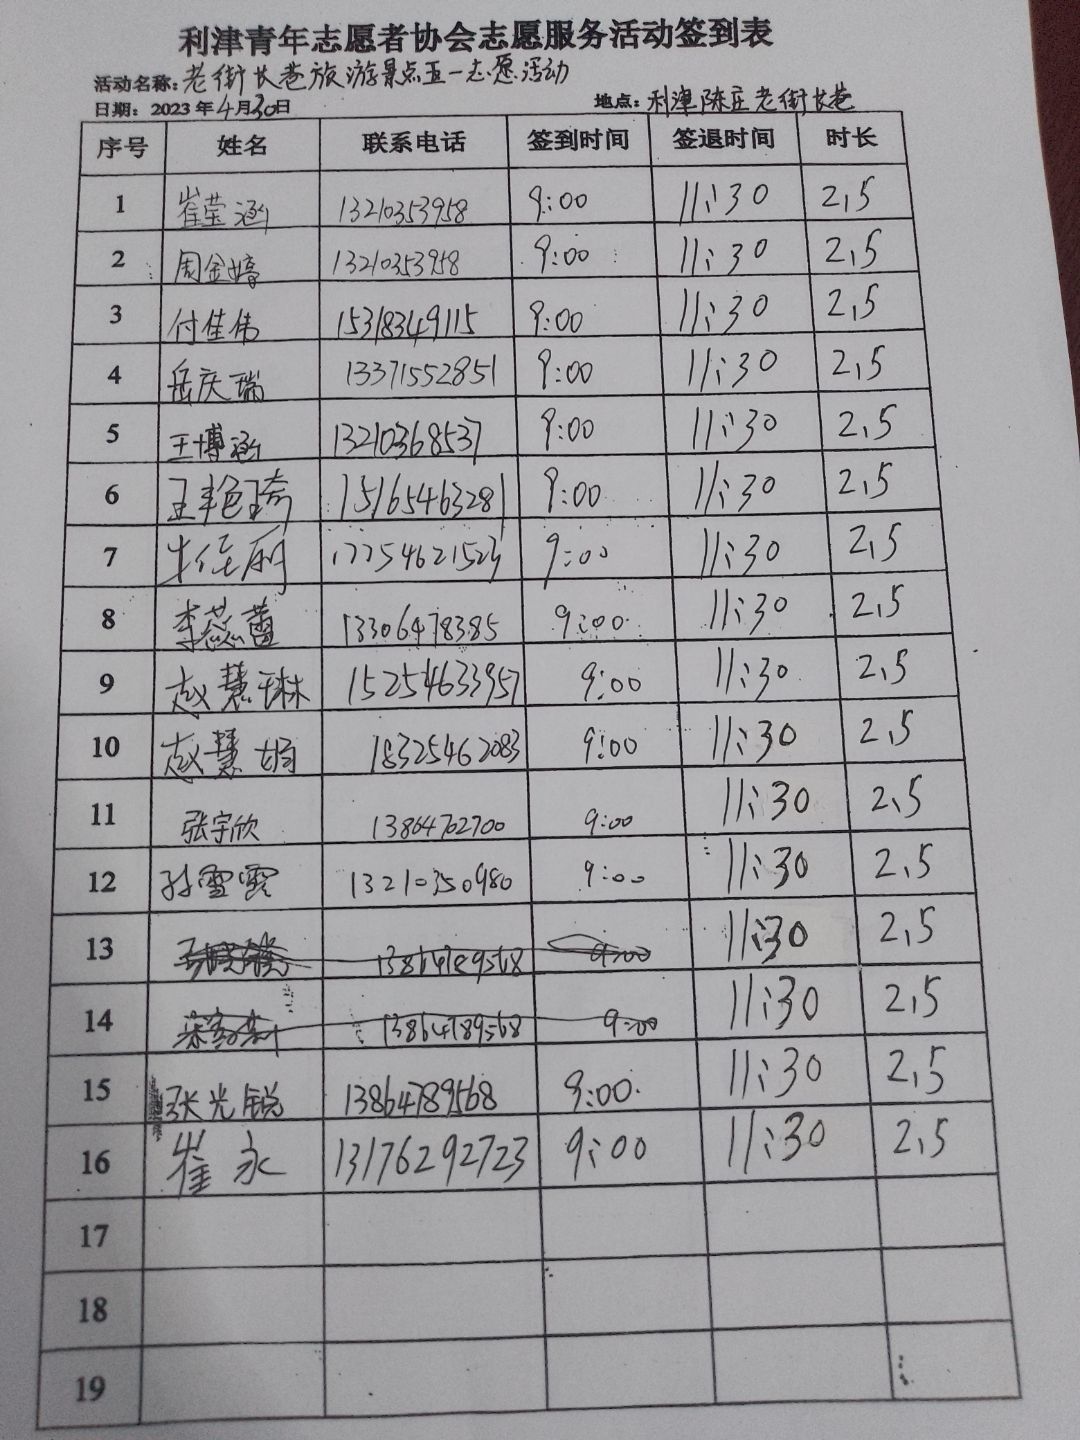 利津青年志愿者协会志愿服务活动签到表
活动名称：老街长巷旅游景点五一志愿活动
日期：2023年4月30日 地点：利津陈庄老街长巷
序号 姓名 联系电话 签到时间 签退时间 时长
1 崔莹涵 13210353958 9:00 11:30 2.5
2 周金婷 13210353958 9:00 11:30 2.5
3 付佳伟 15318349115 9:00 11:30 2.5
4 岳庆瑞 13371552851 9:00 11:30 2.5
5 王博涵 13210368537 9:00 11:30 2.5
6 王艳琦 15165463281 9:00 11:30 2.5
7 牛佳丽 17754621523 9:00 11:30 2.5
8 李蕊蕾 13306478385 9:00 11:30 2.5
9 赵慧琳 15254633957 9:00 11:30 2.5
10 赵慧娟 18325462083 9:00 11:30 2.5
11 张宇欣 13864702700 9:00 11:30 2.5
12 孙雪霞 13210350980 9:00 11:30 2.5
13 9:00 11:30 2.5
14 13864789568 9:00 11:30 2.5
15 张光锐 13864789568 9:00 11:30 2.5
16 崔永 13176292723 9:00 11:30 2.5
17
18
19